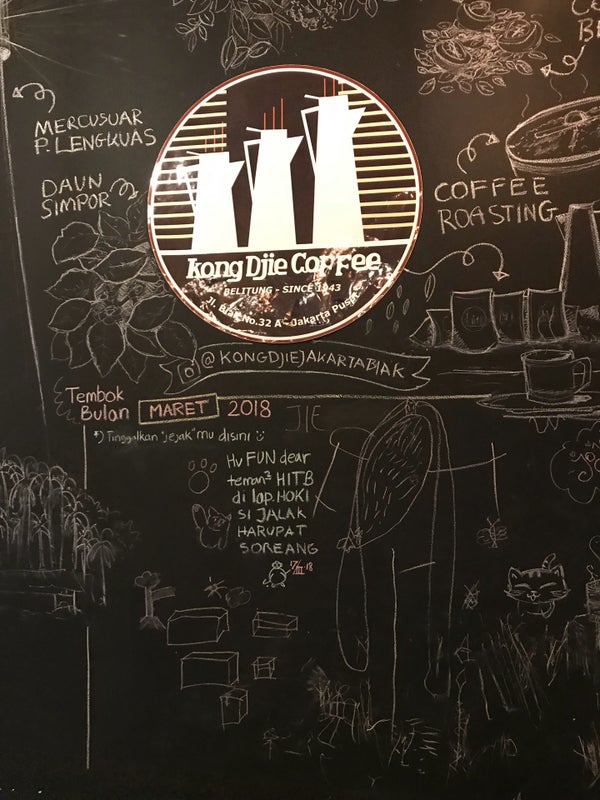 MERCUSUAR
P. LENGKUAS
DAUN
SIMPOR
Kong Djie Coffee
BELITUNG - SINCE 1943
Jl. Biak No.32 A - Jakarta Pusat
COFFEE
ROASTING
@KONGDJIEJAKARTABIAK
Tembok
Bulan MARET 2018
*) Tinggalkan "jejak"mu disini
JIE
HV FUN dear
teman² HITB
di lap. HOKI
SI JALAK
HARUPAT
SOREANG